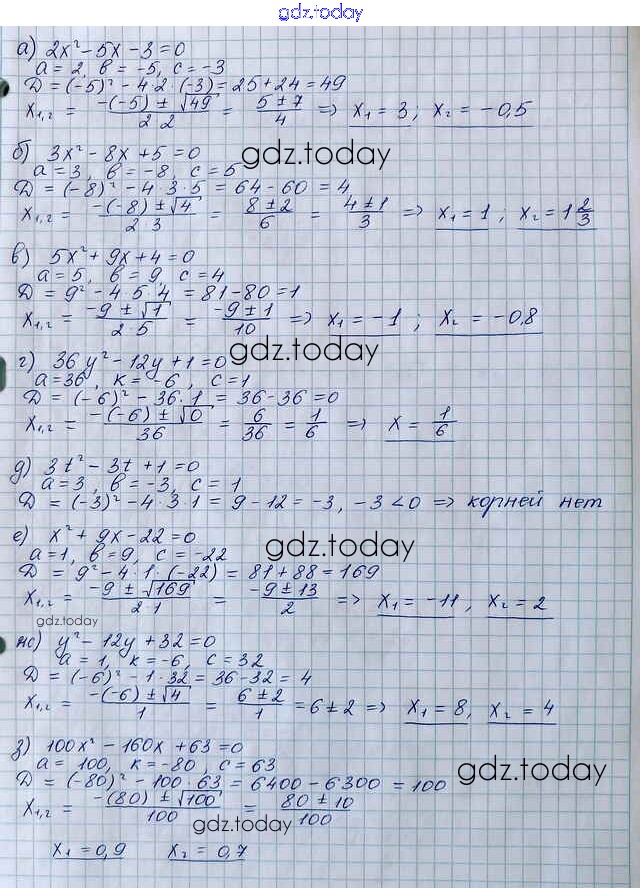 gdz.today
а) 2x² - 5x - 3 = 0
a = 2, в = -5, c = -3
D = (-5)² - 4·2·(-3) = 25 + 24 = 49
x₁,₂ = (-(-5) ± √49)/(2·2) = (5 ± 7)/4 => x₁ = 3; x₂ = -0,5
б) 3x² - 8x + 5 = 0
gdz.today
a = 3, в = -8, c = 5
D = (-8)² - 4·3·5 = 64 - 60 = 4
x₁,₂ = (-(-8) ± √4)/(2·3) = (8 ± 2)/6 = (4 ± 1)/3 => x₁ = 1; x₂ = 1 2/3
в) 5x² + 9x + 4 = 0
a = 5, в = 9, c = 4
D = 9² - 4·5·4 = 81 - 80 = 1
x₁,₂ = (-9 ± √1)/(2·5) = (-9 ± 1)/10 => x₁ = -1; x₂ = -0,8
gdz.today
г) 36y² - 12y + 1 = 0
a = 36, к = -6, c = 1
D = (-6)² - 36·1 = 36 - 36 = 0
x₁,₂ = (-(-6) ± √0)/36 = 6/36 = 1/6 => x = 1/6
д) 3t² - 3t + 1 = 0
a = 3, в = -3, c = 1
D = (-3)² - 4·3·1 = 9 - 12 = -3, -3 < 0 => корней нет
е) x² + 9x - 22 = 0
gdz.today
a = 1, в = 9, c = -22
D = 9² - 4·1·(-22) = 81 + 88 = 169
x₁,₂ = (-9 ± √169)/(2·1) = (-9 ± 13)/2 => x₁ = -11, x₂ = 2
gdz.today
ж) y² - 12y + 32 = 0
a = 1, к = -6, c = 32
D = (-6)² - 1·32 = 36 - 32 = 4
x₁,₂ = (-(-6) ± √4)/1 = (6 ± 2)/1 = 6 ± 2 => x₁ = 8, x₂ = 4
з) 100x² - 160x + 63 = 0
a = 100, к = -80, c = 63
gdz.today
D = (-80)² - 100·63 = 6400 - 6300 = 100
x₁,₂ = (-(80) ± √100)/100 = (80 ± 10)/100
gdz.today
x₁ = 0,9 x₂ = 0,7